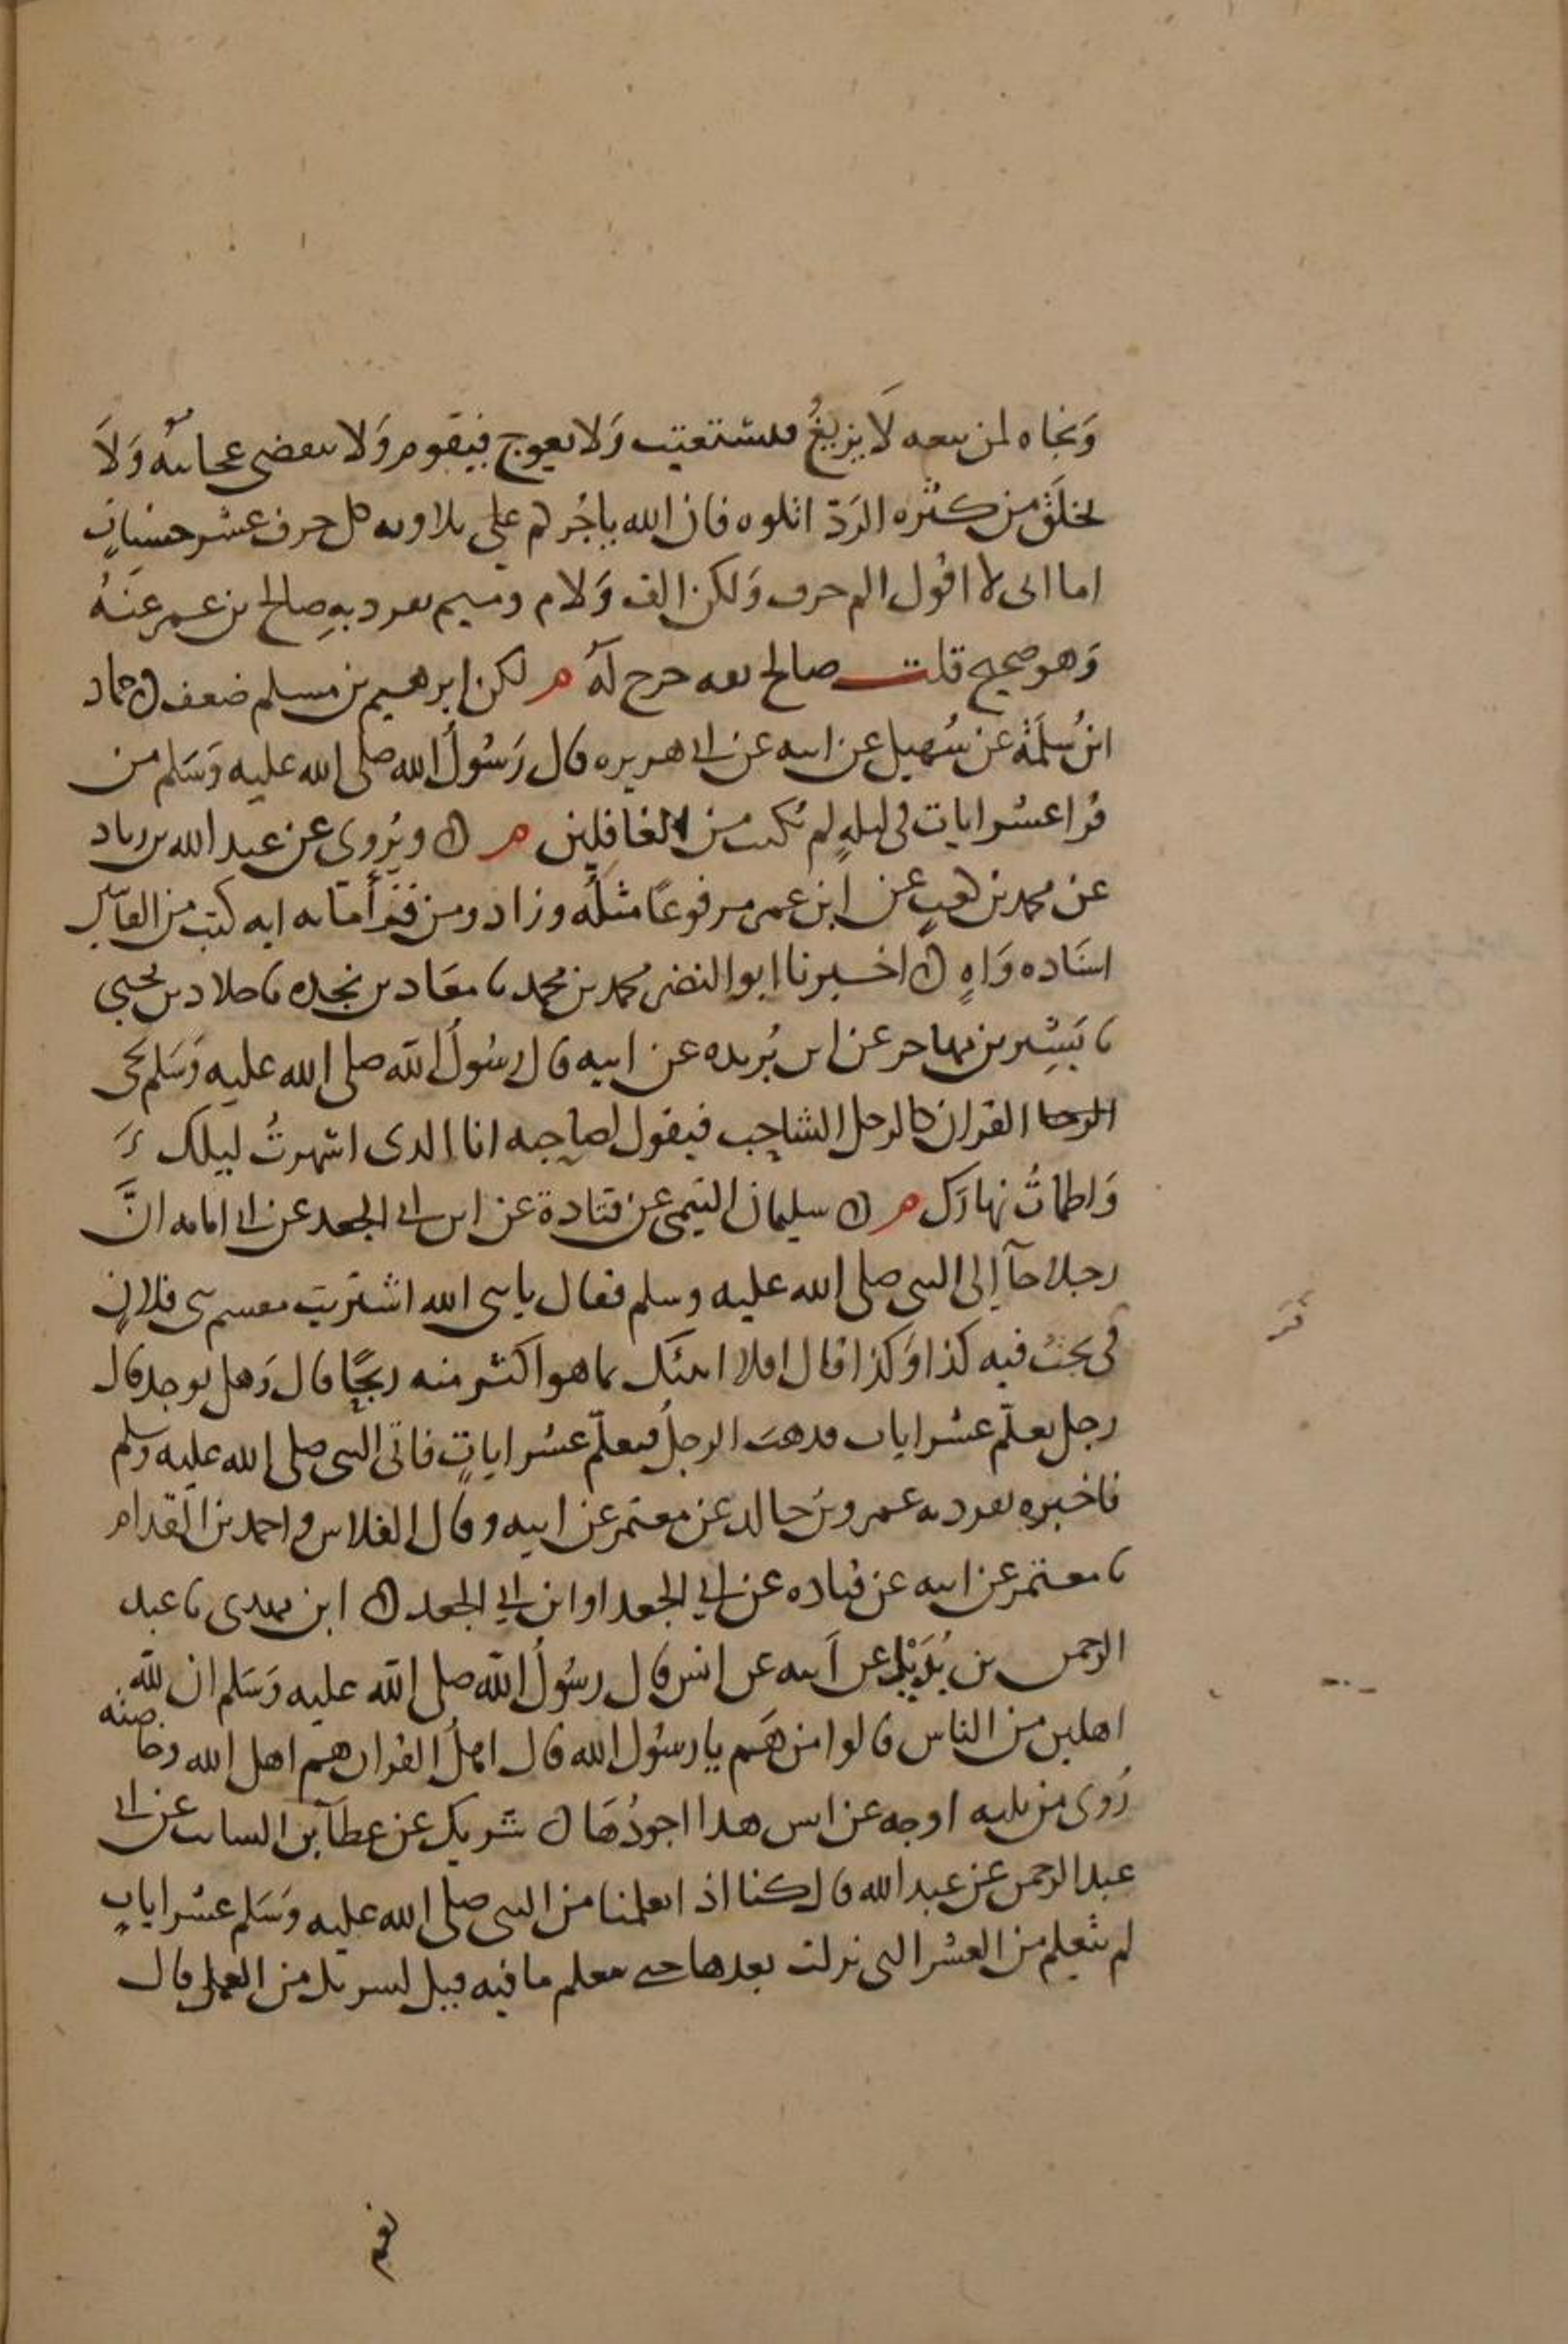 وَنجاه لمن تبعه لَا يزيغُ فيستعتب وَلا يعوج فيقوم وَلا تنقضى عجائبُه وَلَا
يخلَق من كثره الرَدّ اتلوه فان الله يأجُركم على تلاوته كل حرف عشر حسناتٍ
اما انى لا اقول الم حرف وَلكن الف وَلام وميم تفرد بهِ صالح بن عمر عنهُ
وَهو صحيح قلت صالح ثقه خرج لهُ م لكن ابرهيم بن مسلم ضعف ۞ حماد
ابنُ سلمَة عن سُهيل عن ابيه عن ابى هريره قال رَسُولُ الله صلى الله عليه وَسَلم من
قرُا عشر ايات فى ليلهٍ لم يُكتب من الغافِلين م ۞ ويُروى عن عبد الله بن زياد
عن محمد بن كعبٍ عن ابن عمر مرفوعًا مثلُه وزاد ومن قرأ مائه ايه كتب من القانتين
اسنَاده وَاهٍ ۞ اخبرنا ابو النضر محمد بن محمد ثا معَاذ بن نجده ثا خلاد بن يحيى
ثا بَشِير بن مهاجر عن ابن بُريده عن ابيه قال رسُولُ الله صلى الله عليه وَسَلم يجى
القران كالرجل الشاحِب فيقول لصاحبه انا الذى اسْهرتُ ليلك وَ
وَاظماتُ نهارَك م ۞ سليمان التيمى عن قتادة عن ابن ابى الجعد عن ابى امامه انَّ
رجلا جآ إلى النبى صلى الله عليه وسلم فقال يا نبى الله اشتريت مقسم بنى فلانٍ
فربحتُ فيه كذا وَكذا قال افلا انبئك بما هو اكثر منه ربحًا قال وَهل يوجد قال
رجل تعلّم عشر ايات فذهبَ الرجلُ فتعلّم عشر اياتٍ فاتى النبى صلى الله عليه وسلم
فاخبره تفرد به عمرو بن خالد عن معتمر عن ابيه وقال الفلاس واحمد بن المقدام
ثا معتمر عن ابيه عن قتاده عن ابى الجعد او ابن ابى الجعد ۞ ابن مهدى ثا عبد
الرحمن بن بُدَيْل عن ابيه عن انس قال رسُولُ الله صلى الله عليه وَسَلم ان لله
اهلين من الناس قالوا من هَم يا رسُول الله قال اهلُ القران هم اهل الله وخاصته
رُوى من ثلثه اوجه عن انس هذا اجودُهَا ۞ شريك عن عطآ بن السائب عن ابى
عبد الرحمن عن عبد الله قال كنا اذا تعلمنا من النبى صلى الله عليه وَسَلم عشر اياتٍ
لم نتعلم من العشر التى نزلت بعدها حتى نعلم ما فيه قيل لشريك من العمل قال
نعم